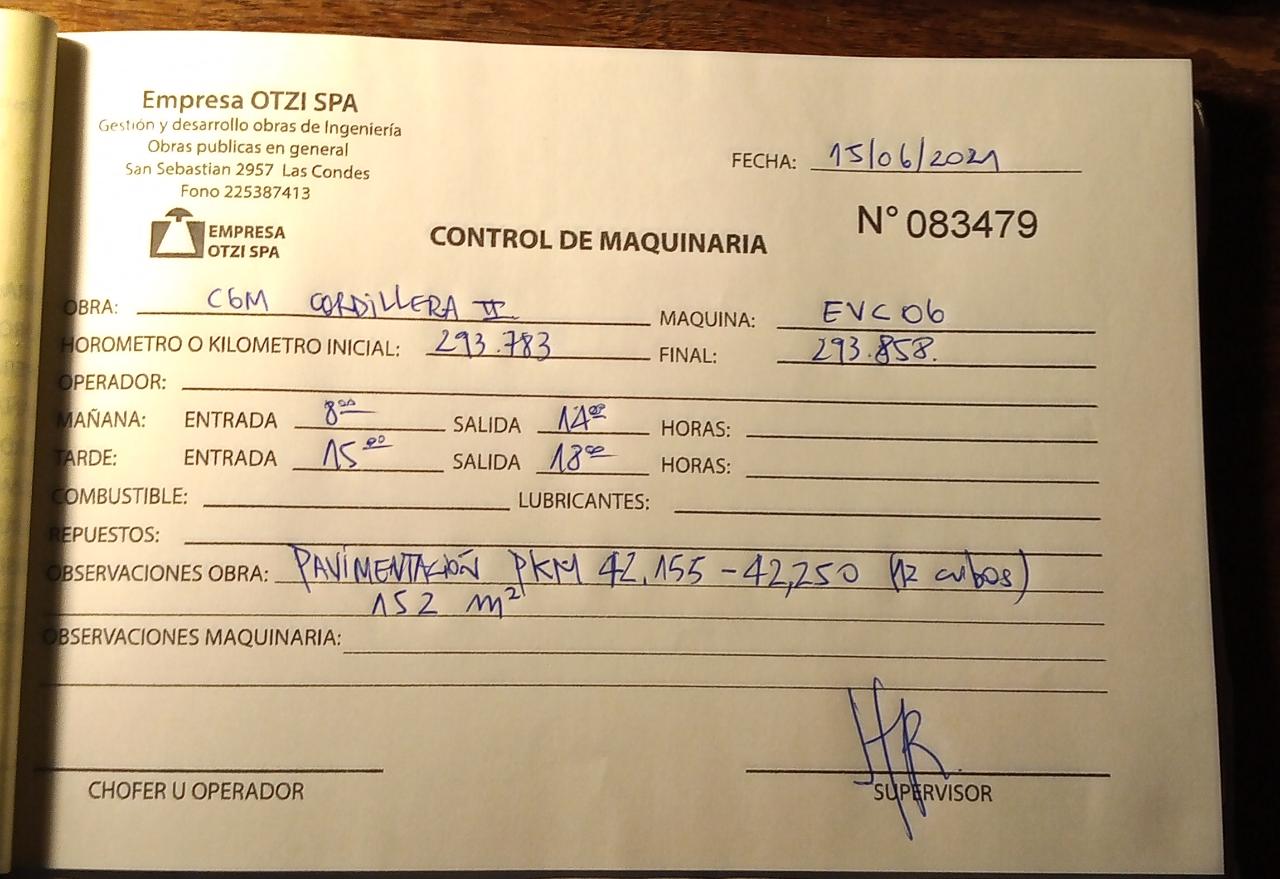 Empresa OTZI SPA
Gestión y desarrollo obras de Ingeniería
Obras publicas en general
San Sebastian 2957 Las Condes
Fono 225387413
FECHA: 15/06/2021
N° 083479
EMPRESA
OTZI SPA
CONTROL DE MAQUINARIA
OBRA: CGM CORDILLERA VI MAQUINA: EVC06
HOROMETRO O KILOMETRO INICIAL: 293.783 FINAL: 293.858.
OPERADOR:
MAÑANA: ENTRADA 8:00 SALIDA 14:00 HORAS:
TARDE: ENTRADA 15:00 SALIDA 18:00 HORAS:
COMBUSTIBLE: LUBRICANTES:
REPUESTOS:
OBSERVACIONES OBRA: PAVIMENTACIÓN PKM 42,155 - 42,250 (12 cubos)
152 m²
OBSERVACIONES MAQUINARIA:
HR
CHOFER U OPERADOR SUPERVISOR